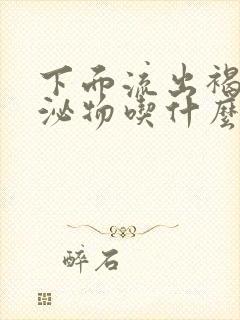 下面流出褐
泌物喫什麼
醉石